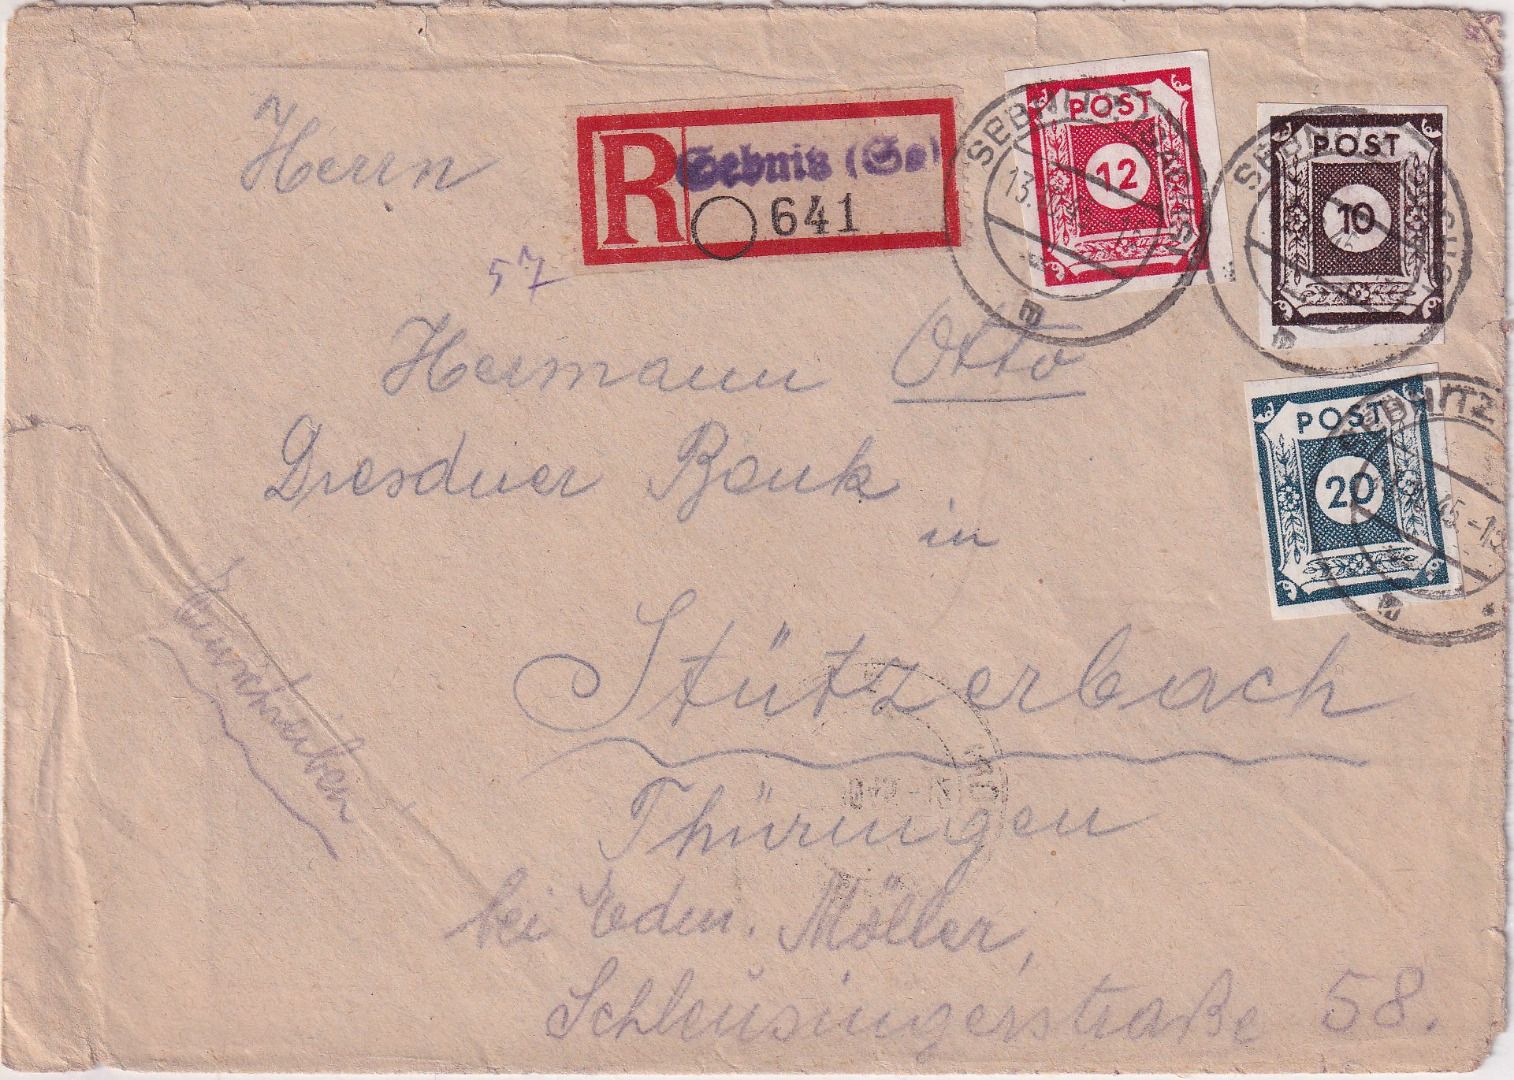 Herrn
R Sebnitz (Sa)
641
57
POST
12
POST
10
POST
20
SEBNITZ
SEBNITZ
SEBNITZ
Hermann Otto
Dresdner Bank
in
Stützerbach
Thüringen
bei Edm. Möller,
Schleusingerstraße 58.
Einschreiben